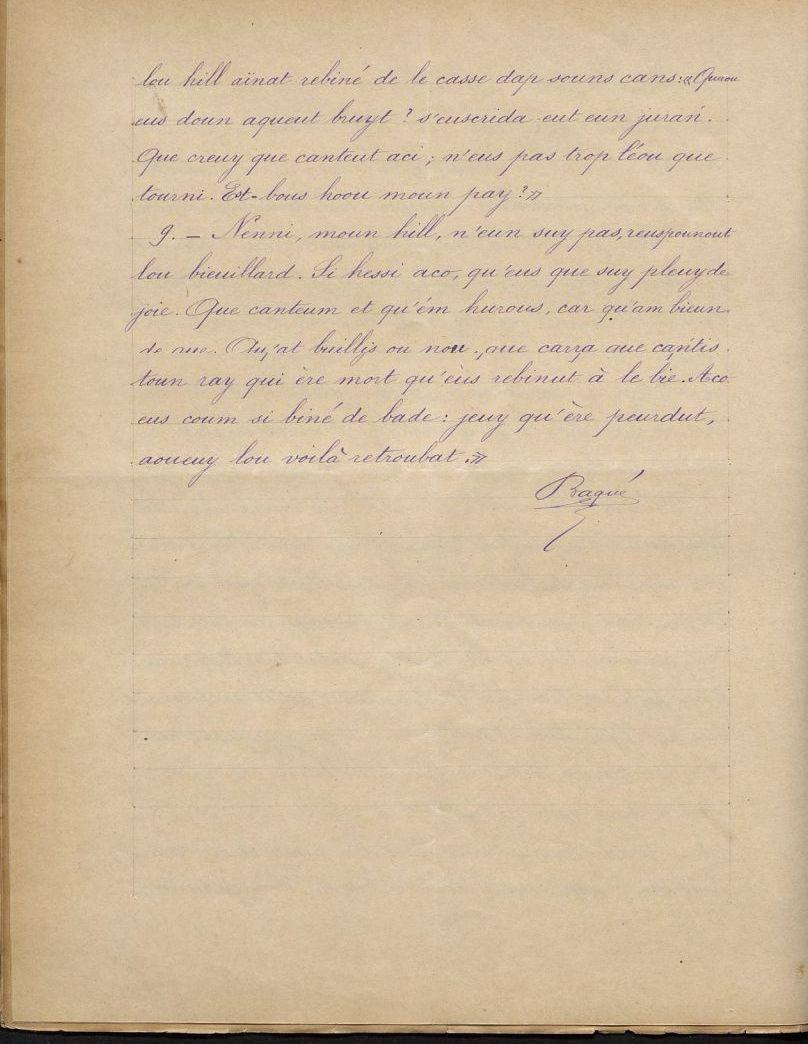 lou hill aïnat rebiné de le casse dap souns cans : « Quirou
eus doun aqueut bruyt ? s'euscrida eut eun juran.
Que creuy que canteut aci ; n'eus pas trop léou que
tourni. Et-bous hoou moun pay ? »
9. – Nenni, moun hill, n'eun suy pas, reuspounout
lou bieuillard. Si hessi aco, qu'eus que suy pleuy de
joie. Que canteum et qu'ém hurous, car qu'am bieun
de que. Qu'at buillis ou nou, que carra que cantis
toun ray qui ère mort qu'eus rebinut à le bie. Aco
eus coum si biné de bade : jeuy qu'ère peurdut,
aoueuy lou voilà retroubat. »
Baqué